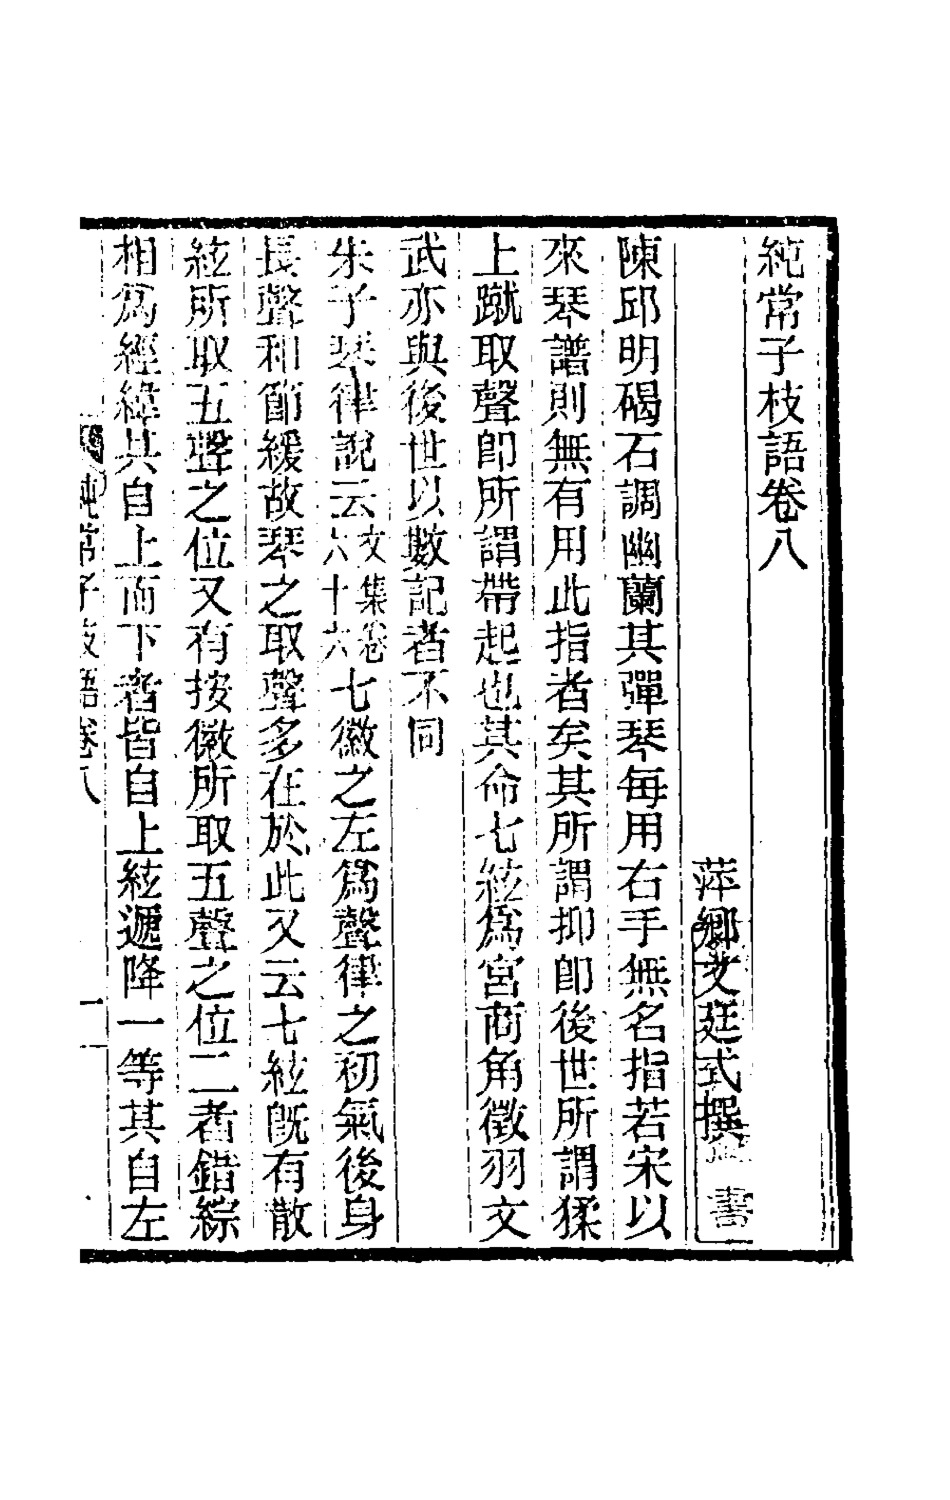 純常子枝語卷八
萍鄉文廷式撰
陳邱明碣石調幽蘭其彈琴每用右手無名指若宋以
來琴譜則無有用此指者矣其所謂抑卽後世所謂猱
上蹴取聲卽所謂帶起也其命七絃爲宮商角徵羽文
武亦與後世以數記者不同
朱子琴律說云文集卷六十六七徽之左爲聲律之初氣後身
長聲和節緩故琴之取聲多在於此又云七絃旣有散
絃所取五聲之位又有按徽所取五聲之位二者錯綜
相爲經緯其自上而下者皆自上絃遞降一等其自左
純常子枝語卷八
一